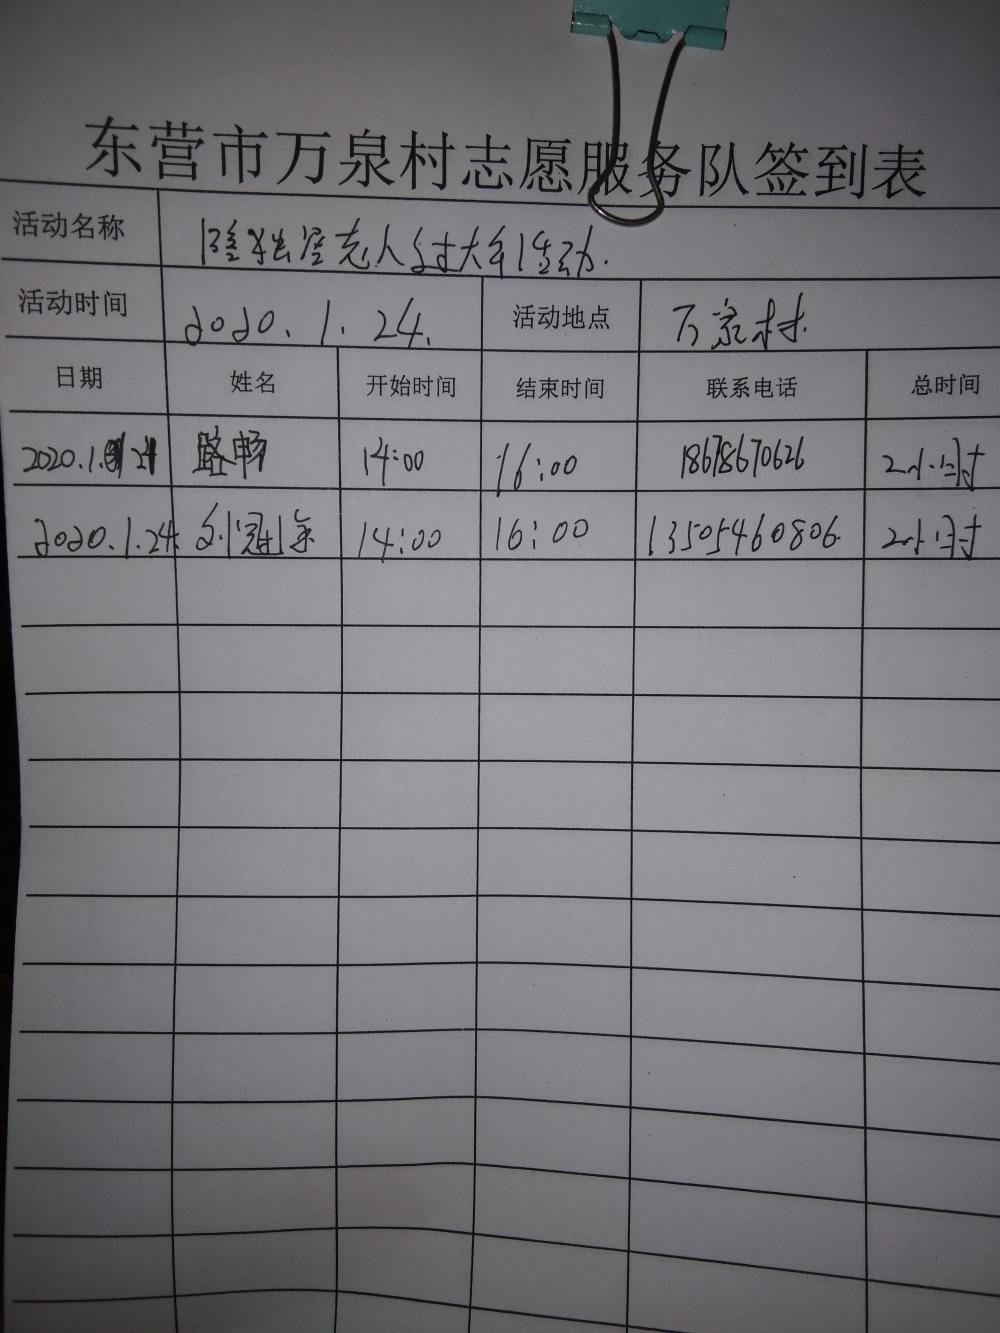 东营市万泉村志愿服务队签到表
活动名称 陪孤居老人过大年活动.
活动时间 2020.1.24. 活动地点 万泉村
日期 姓名 开始时间 结束时间 联系电话 总时间
2020.1.24 路畅 14:00 16:00 18678670626 2小时
2020.1.24. 刘冠 14:00 16:00 13505460806. 2小时